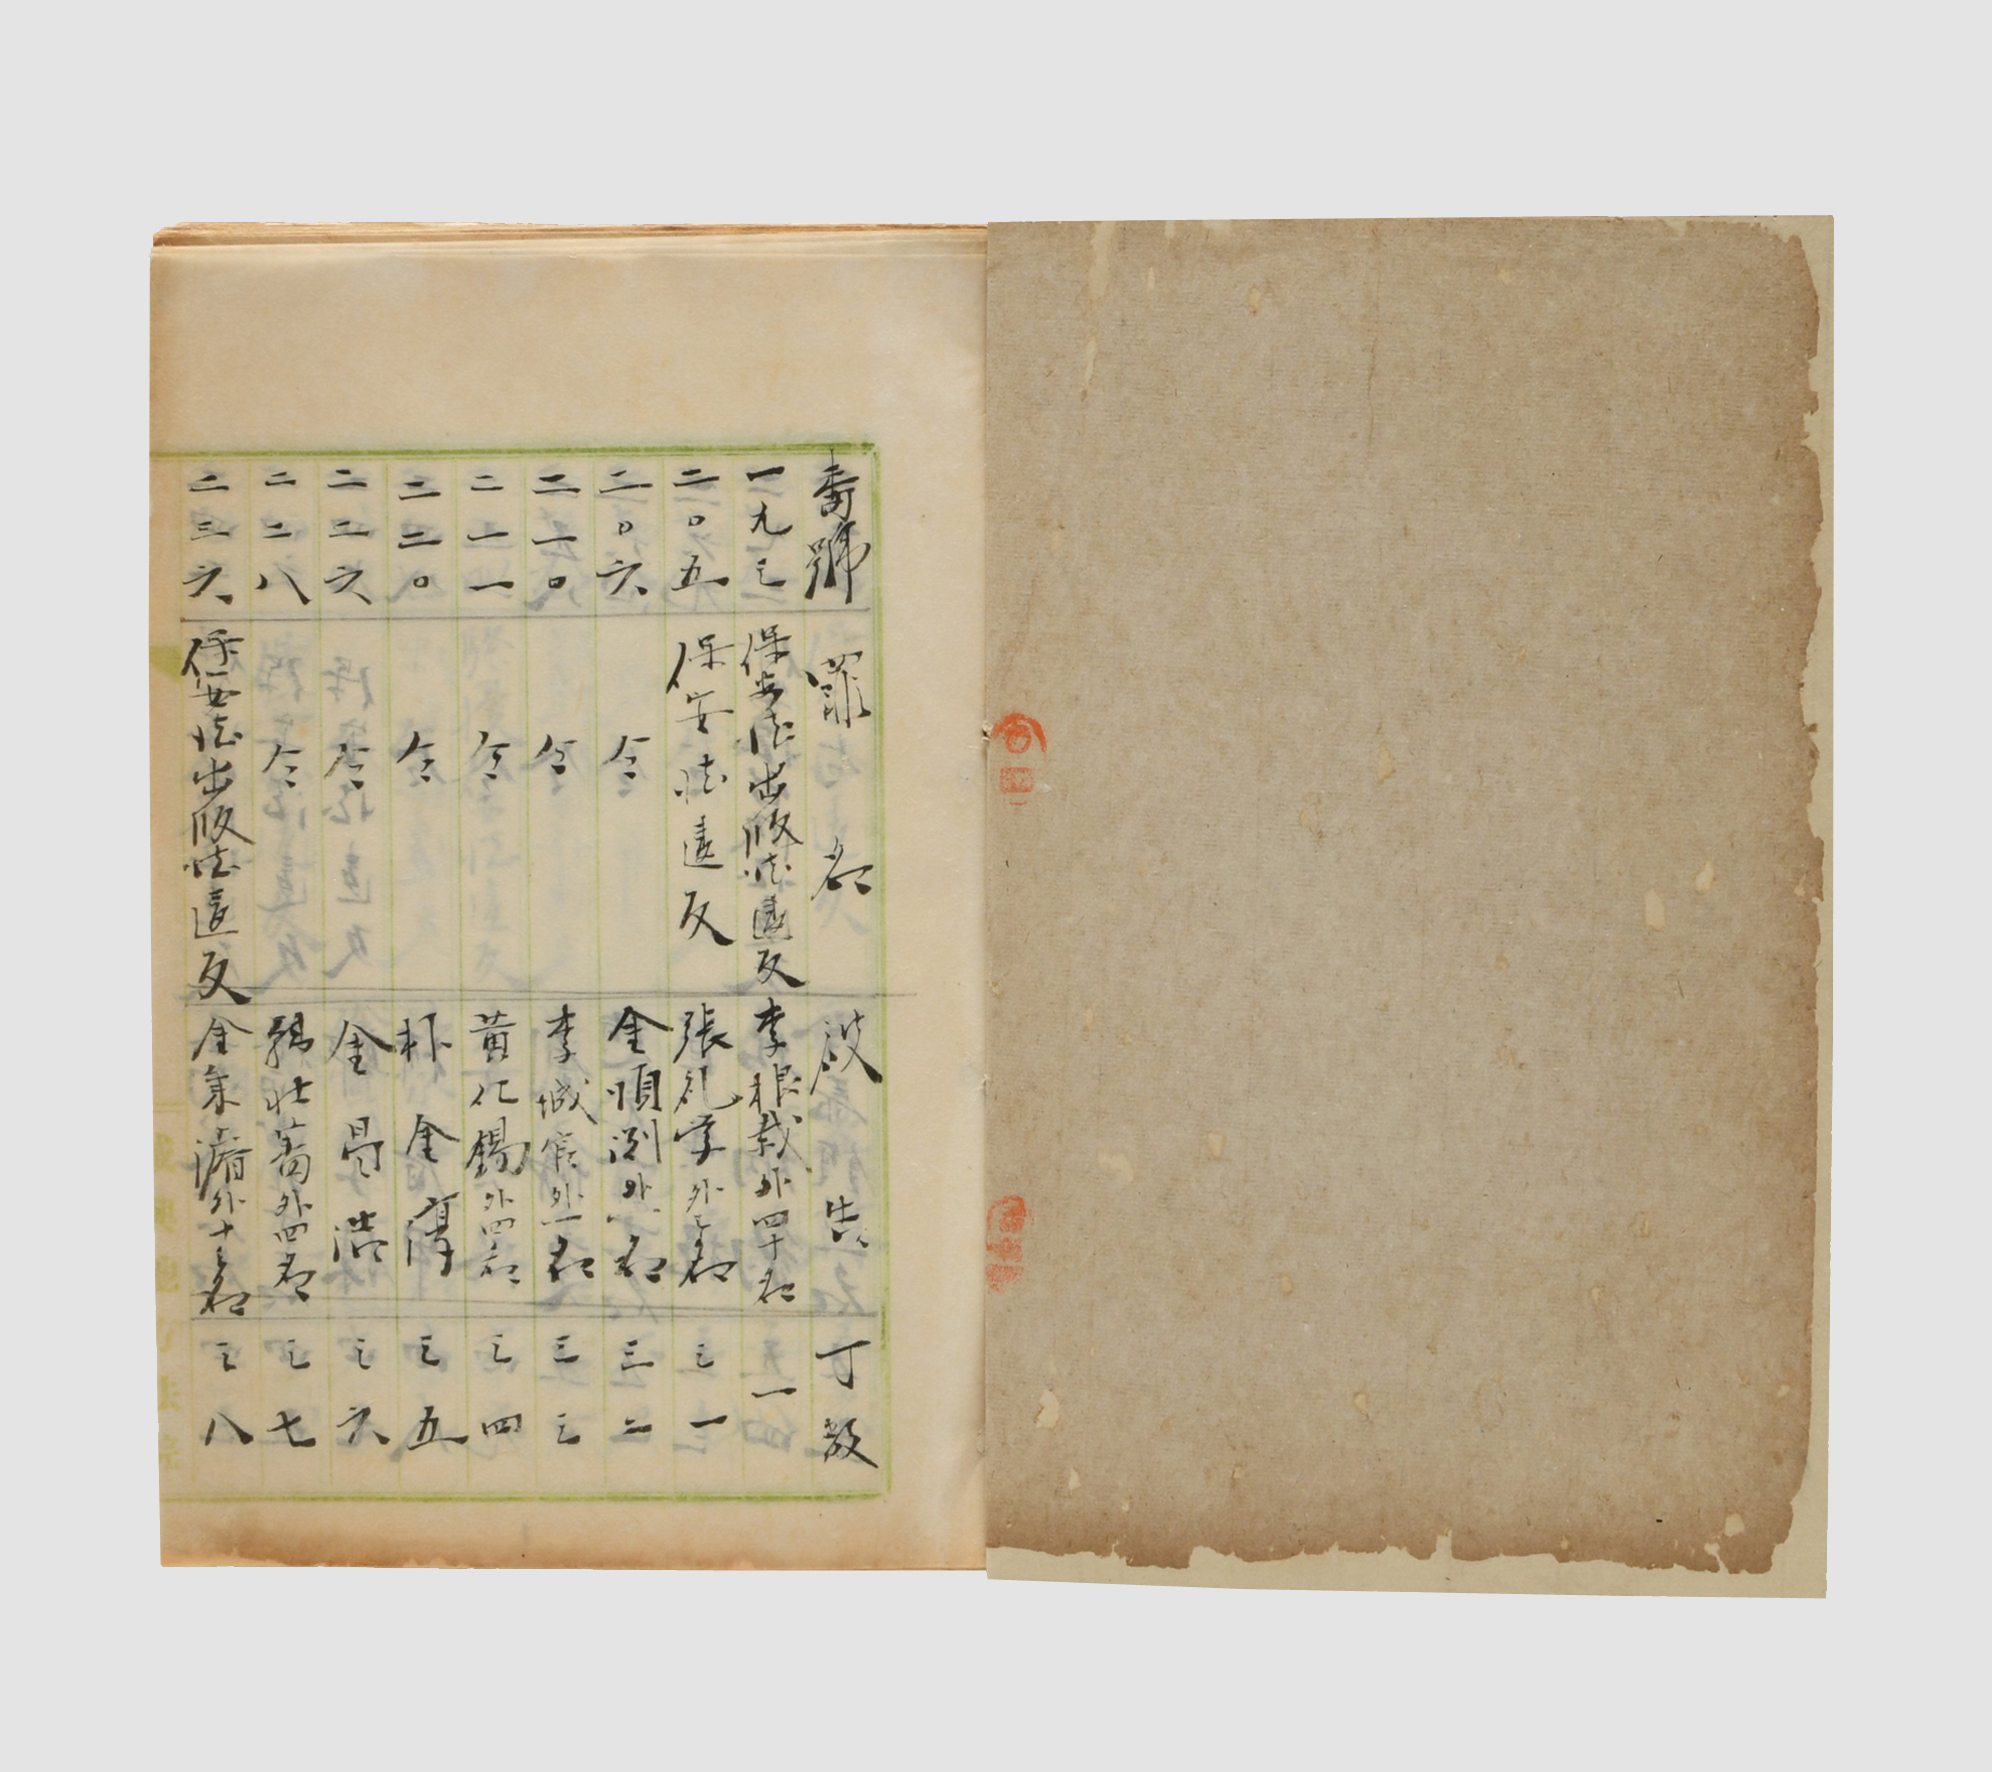 番號 罪名 被告 丁数
一九三 保安法出版法違反 李根載外四十名 一
二〇五 保安法違反 張礼学外三名 三一
二〇六 仝 金順渕外一名 三二
二一〇 仝 李城 外一名 三三
二一一 仝 黄仁錫外四名 三四
二二〇 仝 朴金 三五
二二六 仝 金 浩 三六
二二八 仝 外四名 三七
二三六 保安法出版法違反 金 外十三名 三八